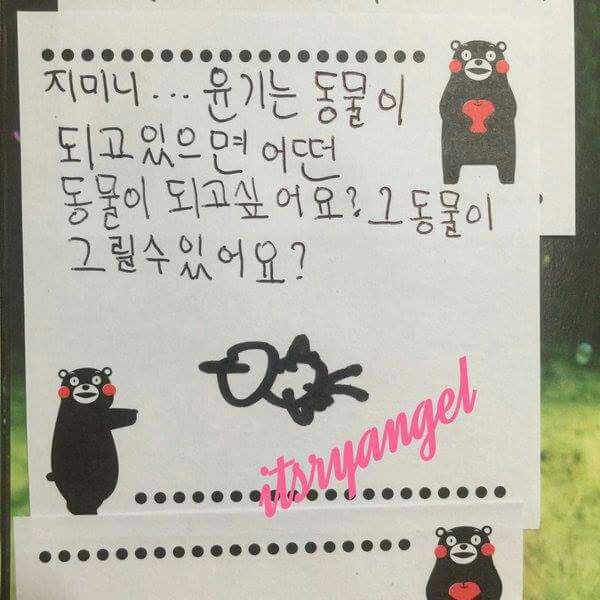 지미니... 윤기는 동물이
되고있으면 어떤
동물이 되고싶어요? 그 동물이
그릴수있어요?
itsryangel